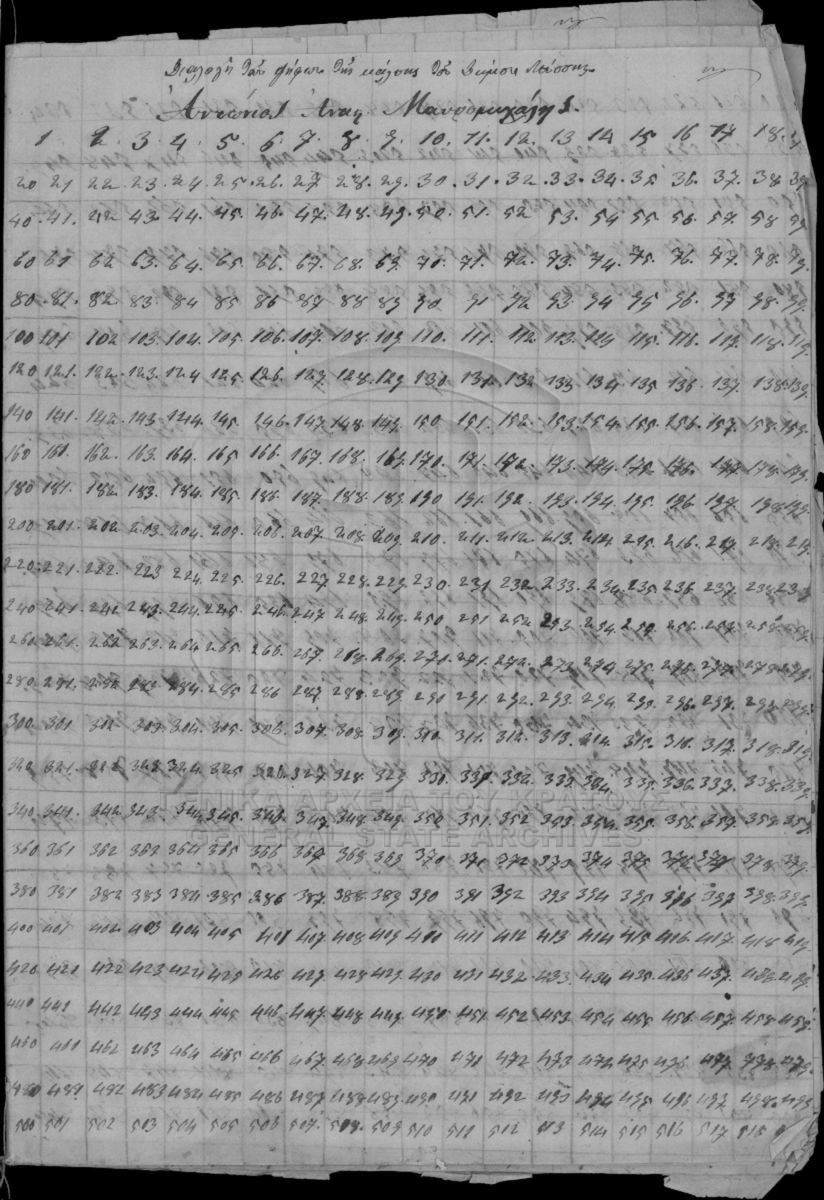 Διαλογὴ τῶν ψήφων τῆς κάλπης τοῦ δήμου
Ἀντώνιος Ἀναγ Μαυρομιχάλης.
1 2. 3. 4. 5. 6. 7. 8. 9. 10. 11. 12. 13 14. 15 16 17 18.
20 21 22. 23. 24. 25. 26. 27 28. 29. 30. 31. 32. 33. 34. 35 36. 37. 38 39
40. 41. 42 43. 44. 45. 46. 47. 48. 49. 50. 51. 52 53. 54 55. 56. 57. 58 59
60 61 62 63. 64. 65. 66. 67. 68. 69. 70. 71. 72. 73. 74. 75. 76. 77. 78. 79.
80. 81. 82. 83. 84 85 86 87 88 89 90 91 92 93. 94 95 96. 97 98. 99.
100 101 102 103. 104. 105. 106. 107. 108. 109 110. 111. 112 113. 115. 118. 119.
120 121. 122. 123. 124 125. 126. 127. 128. 129 130 131. 132 133 134. 135 136. 137. 138. 139.
140 141. 142. 143 144. 145. 146. 147. 148. 149. 150 151. 152. 153. 154. 155. 156. 157. 158. 159.
160 161. 162. 163. 164. 165 166. 167. 168. 169. 170. 171. 172. 173. 174. 175. 176. 177 178. 179.
180 181. 182. 183. 184. 185. 186. 187. 188. 189. 190 191. 192. 193. 194. 195. 196 197. 198. 199.
200 201. 202 203. 204. 205. 206. 207. 208. 209. 210. 211. 212. 213. 214 215. 216. 217 218. 219
220. 221. 222. 223 224. 225. 226. 227 228. 229. 230 231 232. 233. 234. 235 236. 237. 238 239
240 241. 242 243. 244. 245. 246. 247 248. 249. 250 251 252 253 254. 256. 258.
260. 261. 262 263. 264 265. 266. 267 268. 269. 271. 271. 272. 273. 274 275. 276. 277. 278 279.
280. 281. 282 283 284. 285 286 287. 288. 289 290 291. 292. 293. 294. 296. 297. 299.
300 301 302 303. 304. 305. 306. 307. 308. 309. 310. 311. 312. 313. 314. 315. 316. 317. 318. 319
320 321. 322 323. 324. 325 326. 327 328. 329 330. 331. 332. 333. 334. 335. 336. 337. 338. 339.
340. 341. 342. 343. 344 345. 346. 347. 348. 349. 350 351. 352 353 354. 355. 359.
360 361 362 363 364 365 366 367 368. 369 370 371 372 373 374 375 376 377 378 379.
380 381 382 383 384. 385 286 387. 388. 389 390 391 392 393 394 395 396 397 398. 399
400 401 402. 403 404 405 401 407. 408 409 410 411 412 413 414 415 416 417. 418 419
420 421 422 423 424 425 426 427 428 429. 430 431 432. 433. 434 435. 436 437. 438 439.
440 441 442 443 444 445 446. 447 448 449. 450 451. 452 453 454 455. 456 457. 458 459.
460 461 462 463 464 465 466 467 468 469 470 471 472 473 474 475 476 477. 478 479
480. 481. 482 483 484 485 486 487 488 489. 490 491 492 493 494 495 496 497 498. 499
500 501 502 503 504 505 506 507. 508. 509 510 511 512 513 514 515 516 517 518
ΓΕΝΙΚΑ ΑΡΧΕΙΑ ΤΟΥ ΚΡΑΤΟΥΣ
GENERAL STATE ARCHIVES